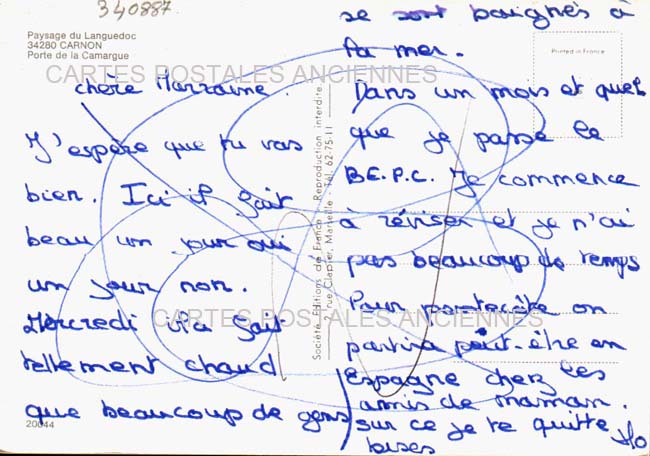 340887
Paysage du Languedoc
34280 CARNON
Porte de la Camargue
CARTES POSTALES ANCIENNES
chère Marraine.
J'espère que tu vas
bien. Ici il fait
beau un jour oui
un jour non.
Mercredi il a fait
CARTES POSTALES ANCIENNES
tellement chaud
que beaucoup de gens
20044
Société Editions de France - Reproduction interdite
2, rue Clapier, Marseille - Tél. 62-75-11
se sont baignés à
la mer.
Printed in France
Dans un mois et quel
que je passe le
B.E.P.C. Je commence
à réviser et je n'ai
pas beaucoup de temps
Pour pentecôte on
partira peut-être en
Espagne chez les
amis de maman.
sur ce je te quitte
bises